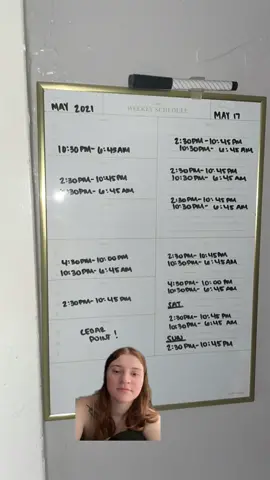 MAY 2021
WEEKLY SCHEDULE
MAY 17
10:30PM-6:45AM
2:30PM-10:45PM
10:30PM-6:45AM
2:30PM-10:45PM
10:30PM-6:45AM
2:30PM-10:45PM
10:30PM-6:45AM
2:30PM-10:45PM
10:30PM-6:45AM
4:30PM-10:00PM
10:30PM-6:45AM
2:30PM-10:45PM
10:30PM-6:45AM
2:30PM-10:45PM
4:30PM-10:00PM
10:30PM-6:45AM
CEDAR
POINT!
SAT
2:30PM-10:45PM
10:30PM-6:45AM
SUN
2:30PM-10:45PM